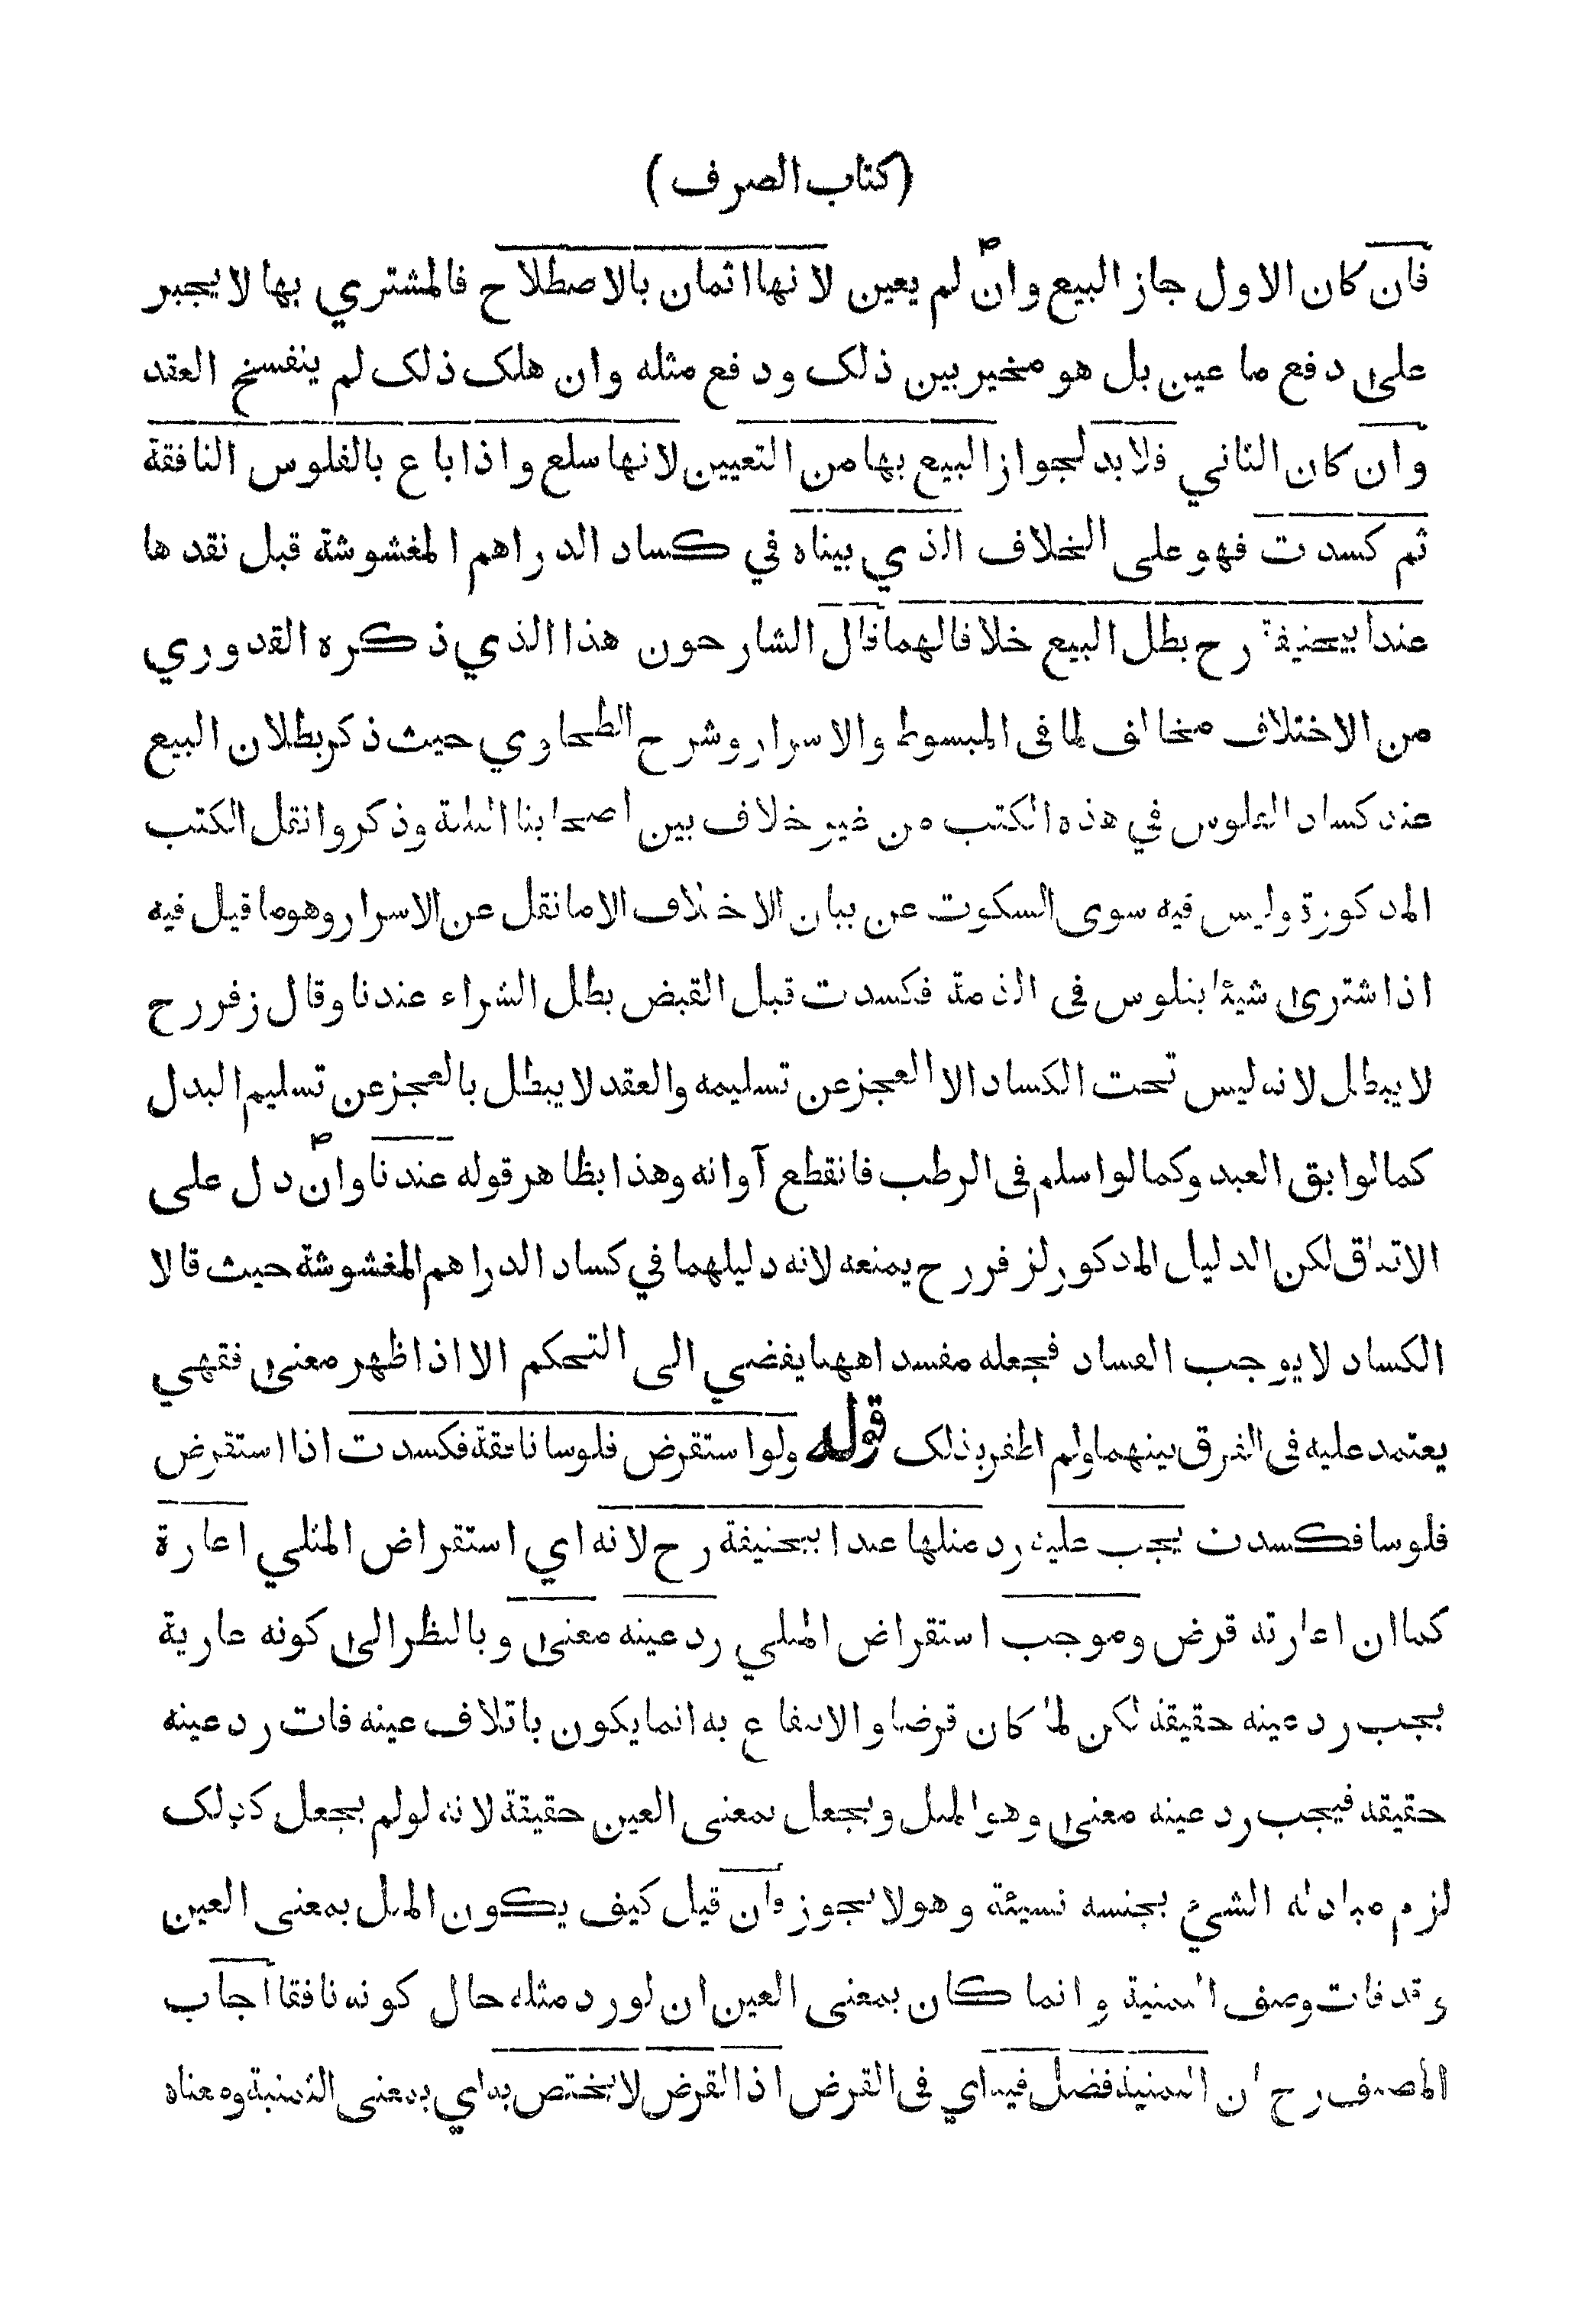 (كتاب الصرف)
فان كان الاول جاز البيع وان لم يعين لانها اثمان بالاصطلاح فالمشتري بها لا يجبر
على دفع ما عين بل هو مخير بين ذلك ودفع مثله وان هلك ذلك لم ينفسخ العقد
وان كان الثاني فلابد لجواز البيع بها من التعيين لانها سلع واذا باع بالفلوس النافقة
ثم كسدت فهو على الخلاف الذي بيناه في كساد الدراهم المغشوشة قبل نقدها
عند ابيحنيفة رح بطل البيع خلافا لهما قال الشارحون هذا الذي ذكره القدوري
من الاختلاف مخالف لما في المبسوط والاسرار وشرح الطحاوي حيث ذكر بطلان البيع
عند كساد الفلوس في هذه الكتب من غير خلاف بين اصحابنا الثلثة وذكروا نقل الكتب
المذكورة وليس فيه سوى السكوت عن بيان الاختلاف الا ما نقل عن الاسرار وهو ما قيل فيه
اذا اشترى شيئا بفلوس في الذمة فكسدت قبل القبض بطل الشراء عندنا وقال زفر رح
لا يبطل لانه ليس تحت الكساد الا العجز عن تسليمه والعقد لا يبطل بالعجز عن تسليم البدل
كما لو ابق العبد وكما لو اسلم في الرطب فانقطع آوانه وهذا بظاهر قوله عندنا وان دل على
الاتفاق لكن الدليل المذكور لزفر رح يمنعه لانه دليلهما في كساد الدراهم المغشوشة حيث قالا
الكساد لا يوجب الفساد فجعله مفسدا ههنا يفضي الى التحكم الا اذا ظهر معنى فقهي
يعتمد عليه في الفرق بينهما ولم اظفر بذلك قوله ولو استقرض فلوسا نافقة فكسدت اذا استقرض
فلوسا فكسدت يجب عليه رد مثلها عند ابيحنيفة رح لانه اي استقراض المثلي اعارة
كما ان اعارته قرض وموجب استقراض المثلي رد عينه معنى وبالنظر الى كونه عارية
يجب رد عينه حقيقة لكن لما كان قرضا والانتفاع به انما يكون باتلاف عينه فات رد عينه
حقيقة فيجب رد عينه معنى وهو المثل ويجعل بمعنى العين حقيقة لانه لو لم يجعل كذلك
لزم مبادلة الشيء بجنسه نسيئة وهو لا يجوز فان قيل كيف يكون المثل بمعنى العين
وقد فات وصف الثمنية وانما كان بمعنى العين ان لو رد مثله حال كونه نافقا اجاب
المصنف رح ان الثمنية فضل فيه اي في القرض اذ القرض لا يختص به اي بمعنى الثمنية ومعناه